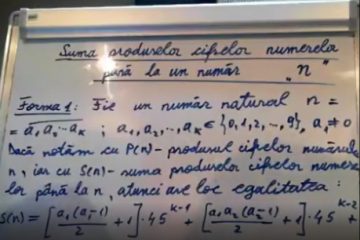 Suma produselor cifrelor numerelor
până la un număr „n"
Forma 1: Fie un număr natural n =
= a₁a₂...aₖ ; a₁, a₂, ..., aₖ ∈ {0,1,2, ..., 9}, a₁ ≠ 0
Dacă notăm cu P(n)- produsul cifrelor numărului
n, iar cu S(n)- suma produselor cifrelor numere
lor până la n, atunci are loc egalitatea:
S(n) = [a₁(a₁-1)/2 + 1] · 45ᵏ⁻¹ + [a₁a₂(a₂-1)/2 + 1] · 45ᵏ⁻² +